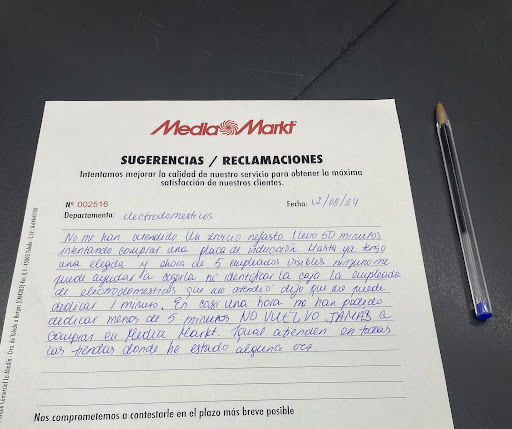 Media Markt
SUGERENCIAS / RECLAMACIONES
Intentamos mejorar la calidad de nuestro servicio para obtener la máxima
satisfacción de nuestros clientes.
Nº 002516
Fecha: 12/08/24
Departamento: electrodomesticos
No me han atendido Un servicio nefasto llevo 50 minutos
intentando comprar una placa de inducción Hasta ya tengo
una elegida y ahora de 5 empleados visibles ninguno me
puede ayudar la cogerla ni identificar la caja la empleada
de electrodomesticos que me atendió dijo que me puede
dedicar 1 minuto. En casi una hora me han podido
dedicar menos de 5 minutos. NO VUELVO JAMAS a
comprar en Media Markt. Igual atienden en todas
las tiendas donde he estado alguna vez
Nos comprometemos a contestarle en el plazo más breve posible